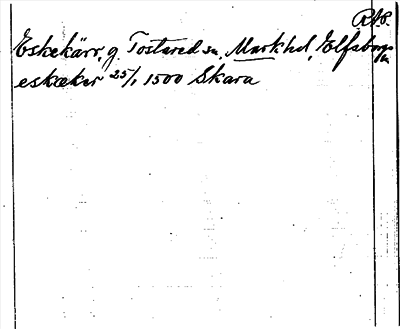 RAp.
Eskekärr, g. Tostared sn, Mark hd, Elfsborgs
ln
eskæker 25/1 1500 Skara